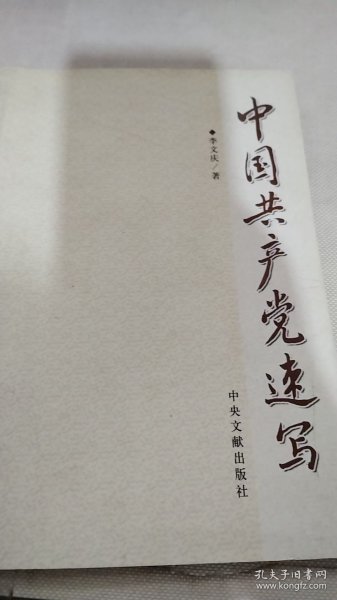 中国共产党速写
◆李文庆/著
中央文献出版社
孔夫子旧书网